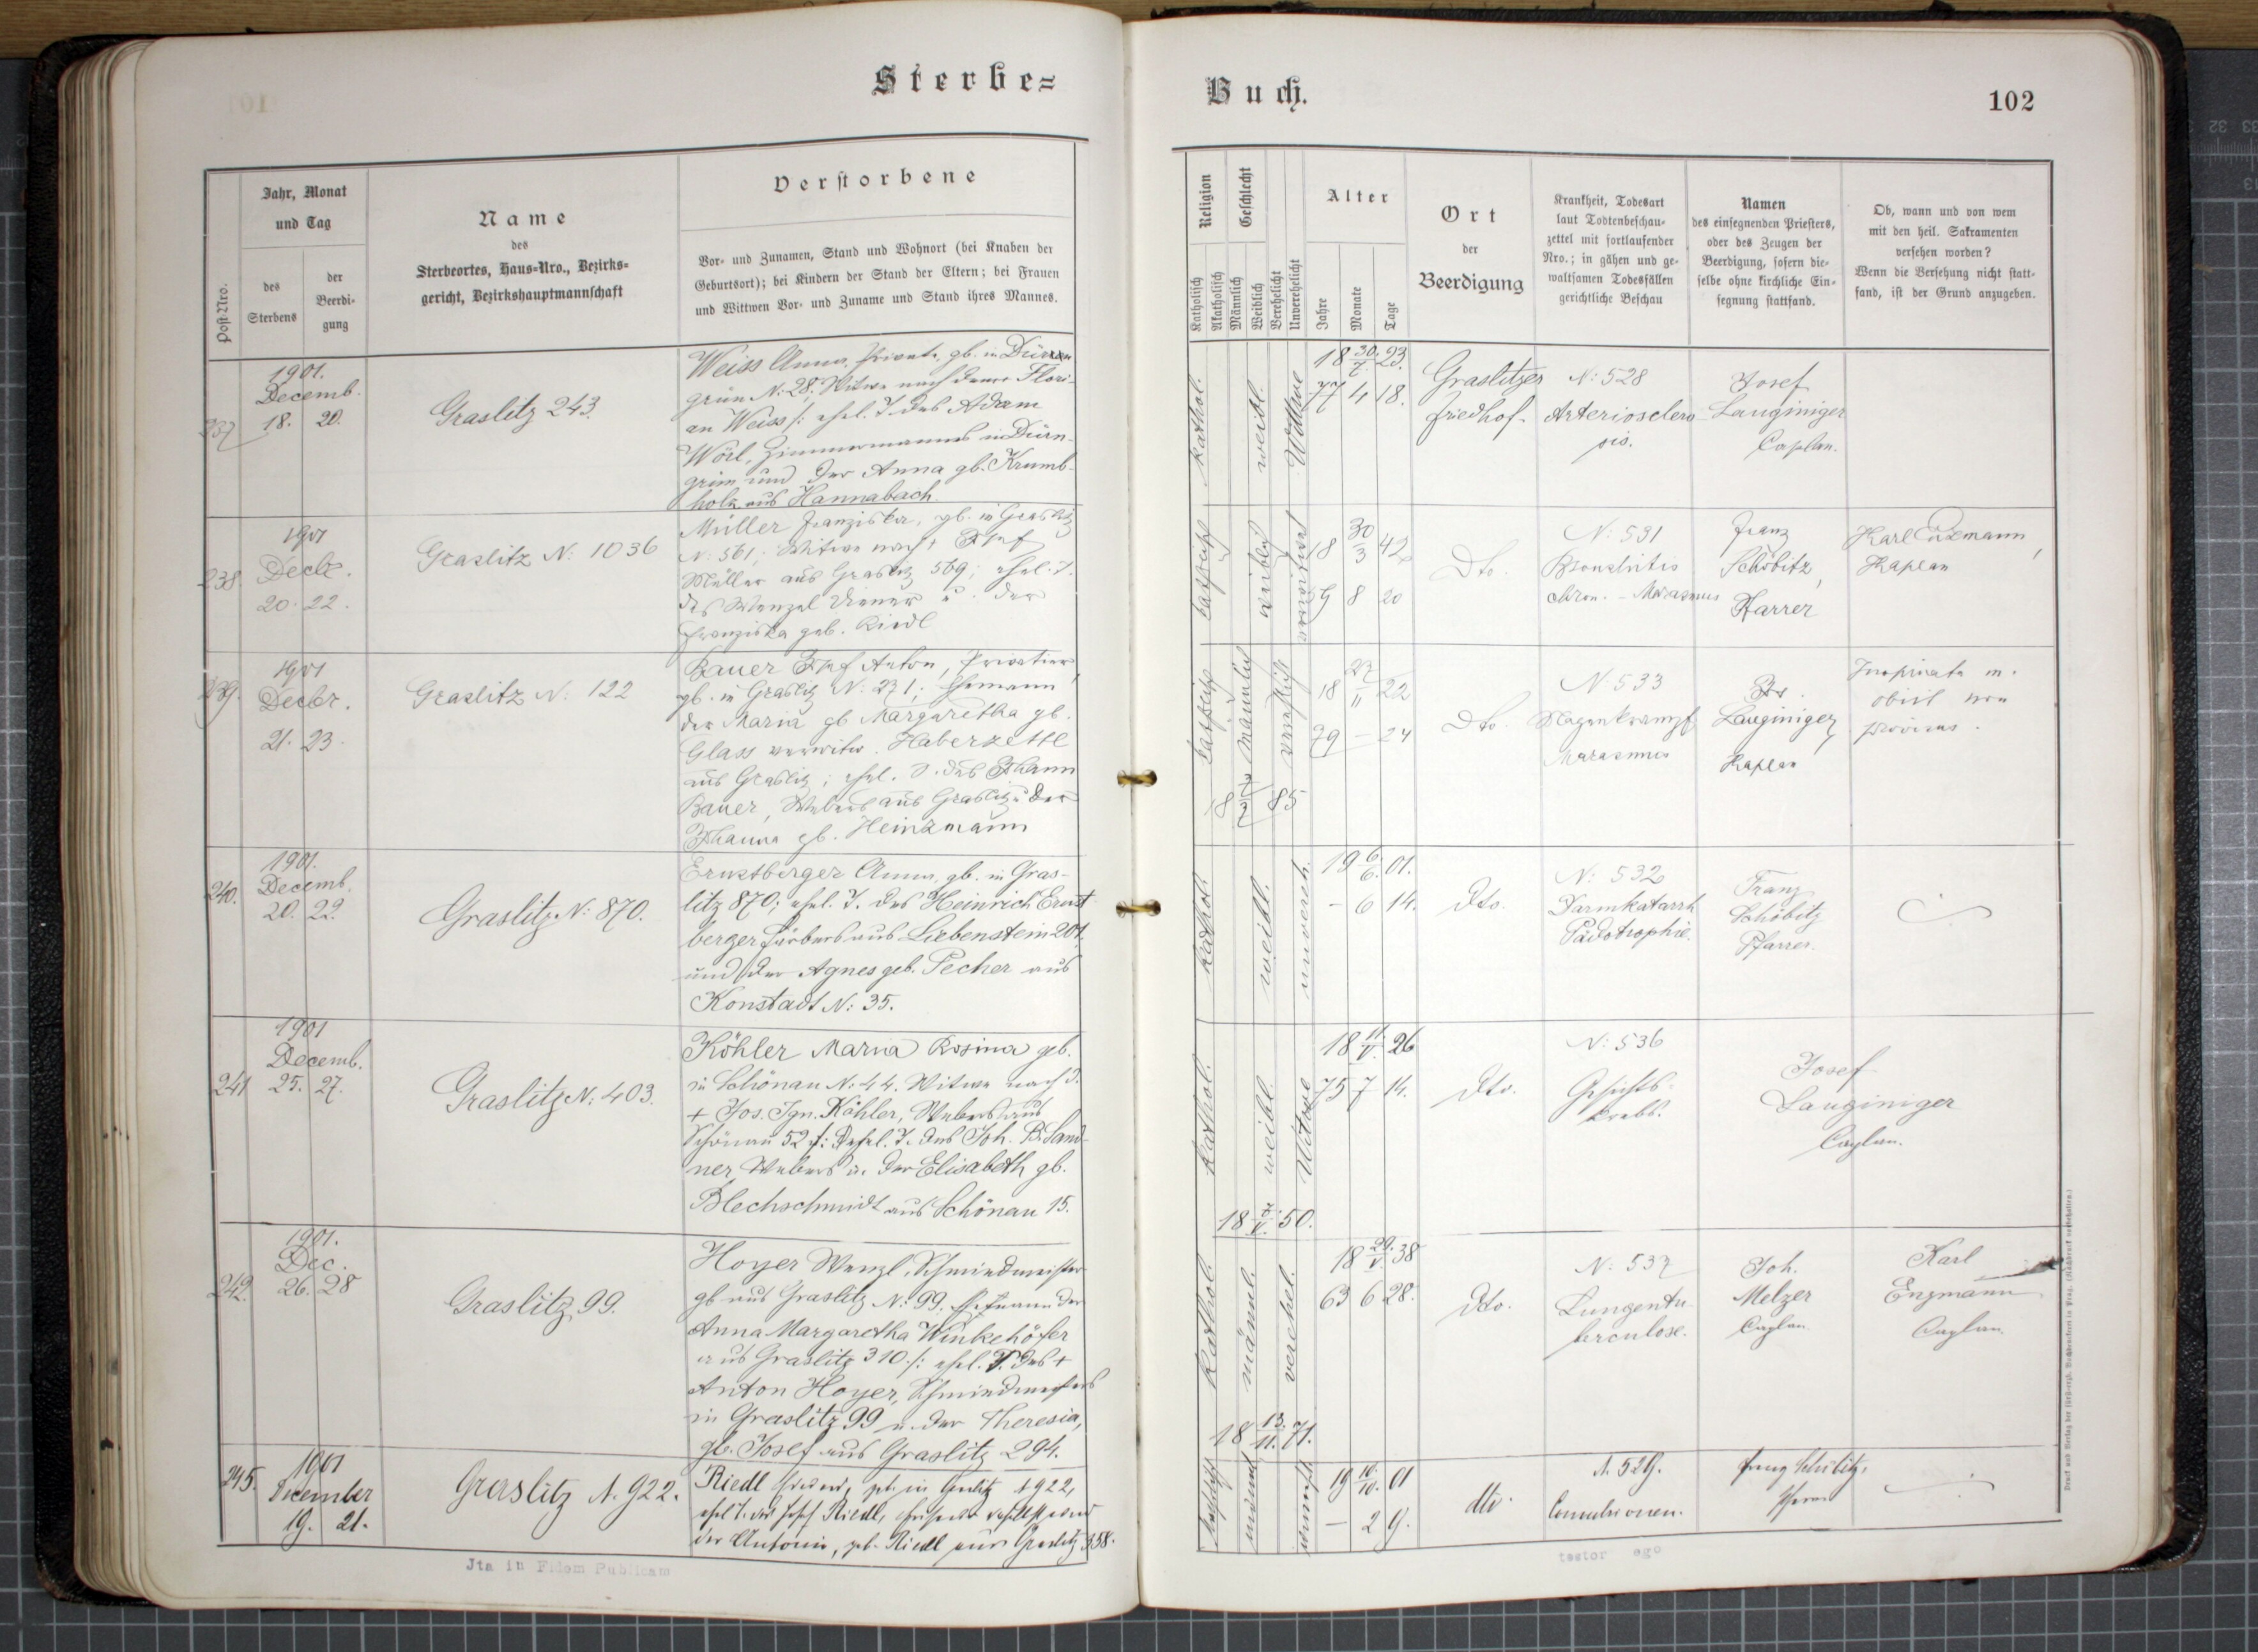 Sterbe=
Buch.
102
Post-Nro.
Jahr, Monat
und Tag
des
Sterbens
der
Beerdi-
gung
Name
des
Sterbeortes, Haus-Nro., Bezirks-
gericht, Bezirkshauptmannschaft
Verstorbene
Vor- und Zunamen, Stand und Wohnort (bei Knaben der
Geburtsort); bei Kindern der Stand der Eltern; bei Frauen
und Wittwen Vor- und Zuname und Stand ihres Mannes.
Religion
Katholisch
Akatholisch
Geschlecht
Männlich
Weiblich
Verehelicht
Unverehelicht
Alter
Jahre
Monate
Tage
Ort
der
Beerdigung
Krankheit, Todesart
laut Todtenbeschau-
zettel mit fortlaufender
Nro.; in gähen und ge-
waltsamen Todesfällen
gerichtliche Beschau
Namen
des einsegnenden Priesters,
oder des Zeugen der
Beerdigung, sofern die-
selbe ohne kirchliche Ein-
segnung stattfand.
Ob, wann und von wem
mit den heil. Sakramenten
versehen worden?
Wenn die Versehung nicht statt-
fand, ist der Grund anzugeben.
237
1901.
Decemb.
18. 20.
Graslitz 243.
Weiss Anna, Private, gb. in Dürrn
grün N: 28, Witwe nach Flori-
an Weiss /: ehel. T. des Adam
Wörl, Zimmermannes in Dürn-
grün und der Anna gb. Krumb-
holz aus Hannabach.
kathol.
weibl.
Wittwe
18 30./7. 23.
77 4 18.
Graslitzer
Friedhof.
N: 528
Arteriosclero-
sis.
Josef
Lauginiger
Caplan.
238.
1901
Decbr.
20. 22.
Graslitz N: 1036
Müller Franziska, gb. in Graslitz
N: 561; Witwe nach + Josef
Müller aus Graslitz 569; ehel. T.
des Wenzel u. der
Franziska geb. Riedl
katholisch
weiblich
verwitwet
18 30/3 42
59 8 20
Dto.
N: 531
Bronchitis
chron. - Marasmus
Franz
Schöbitz,
Pfarrer
Karl Enzmann,
Kaplan
239.
1901
Decbr.
21. 23.
Graslitz N: 122
Bauer Josef Anton, Privatier,
gb. in Graslitz N: 271; Ehemann
der Maria gb Margaretha gb.
Glass verwitw. Haberzettl
aus Graslitz; ehel. S. des Johann
Bauer, Webers aus Graslitz u. der
Johanna gb. Heinzmann
katholisch
Männlich
verehelicht
18 27/11 22
79 — 24
85
Dto.
N. 533
Magenkrampf
Marasmus
Jos.
Lauginiger,
Kaplan
Inopinata m.
obiit non
provisus.
240.
1901.
Decemb.
20. 22.
Graslitz N: 870.
Ernstberger Anna, gb. in Gras-
litz 870; ehel. T. des Heinrich Ernst-
berger Färbers aus Liebenstein 201,
und der Agnes geb. Pecher aus
Konstadt N: 35.
kathol.
weibl.
unvereh.
19 6./6. 01.
- 6 14.
Dto.
N: 532
Darmkatarrh
Pädotrophie.
Franz
Schöbitz
Pfarrer.
241
1901
Decemb.
25. 27.
Graslitz N: 403.
Köhler Maria Rosina gb.
in Schönau N: 44. Witwe nach d.
+ Jos. Ign. Köhler, Webers aus
Schönau 52 /: ehel. T. des Joh. B. Sand-
ner Webers u. der Elisabeth gb.
Blechschmidt aus Schönau 15.
kathol.
weibl.
Witwe
18 11./V. 26
75 7 14.
18 50.
Dto.
N: 536
Gesichts-
krebs.
Josef
Lauginiger
Caplan.
242.
1901.
Dec.
26. 28
Graslitz 99.
Hoyer Wenzl, Schmiedmeister
gb aus Graslitz N: 99. Ehemann der
Anna Margaretha Winkehöfer
aus Graslitz 310 /: ehel. S. des +
Anton Hoyer, Schmiedmeisters
in Graslitz 99 u. der Theresia,
gb. Josef aus Graslitz 294.
kathol.
männl.
verehel.
18 29./V. 38
63 6 28.
18 13./11. 71.
Dto.
N: 537
Lungentu-
berculose.
Joh.
Melzer
Caplan.
Karl
Enzmann
Caplan.
245.
1901
December
19. 21.
Graslitz N. 922.
Riedl geb. in Graslitz N 922,
ehel. des Josef Riedl,
der Antonia, geb. Riedl aus Graslitz 358.
19 10./10. 01
— 2 9.
dto.
N. 529.
Convulsionen.
Franz Schöbitz,
Pfarrer
Jta in Fidem Publicam
testor ego